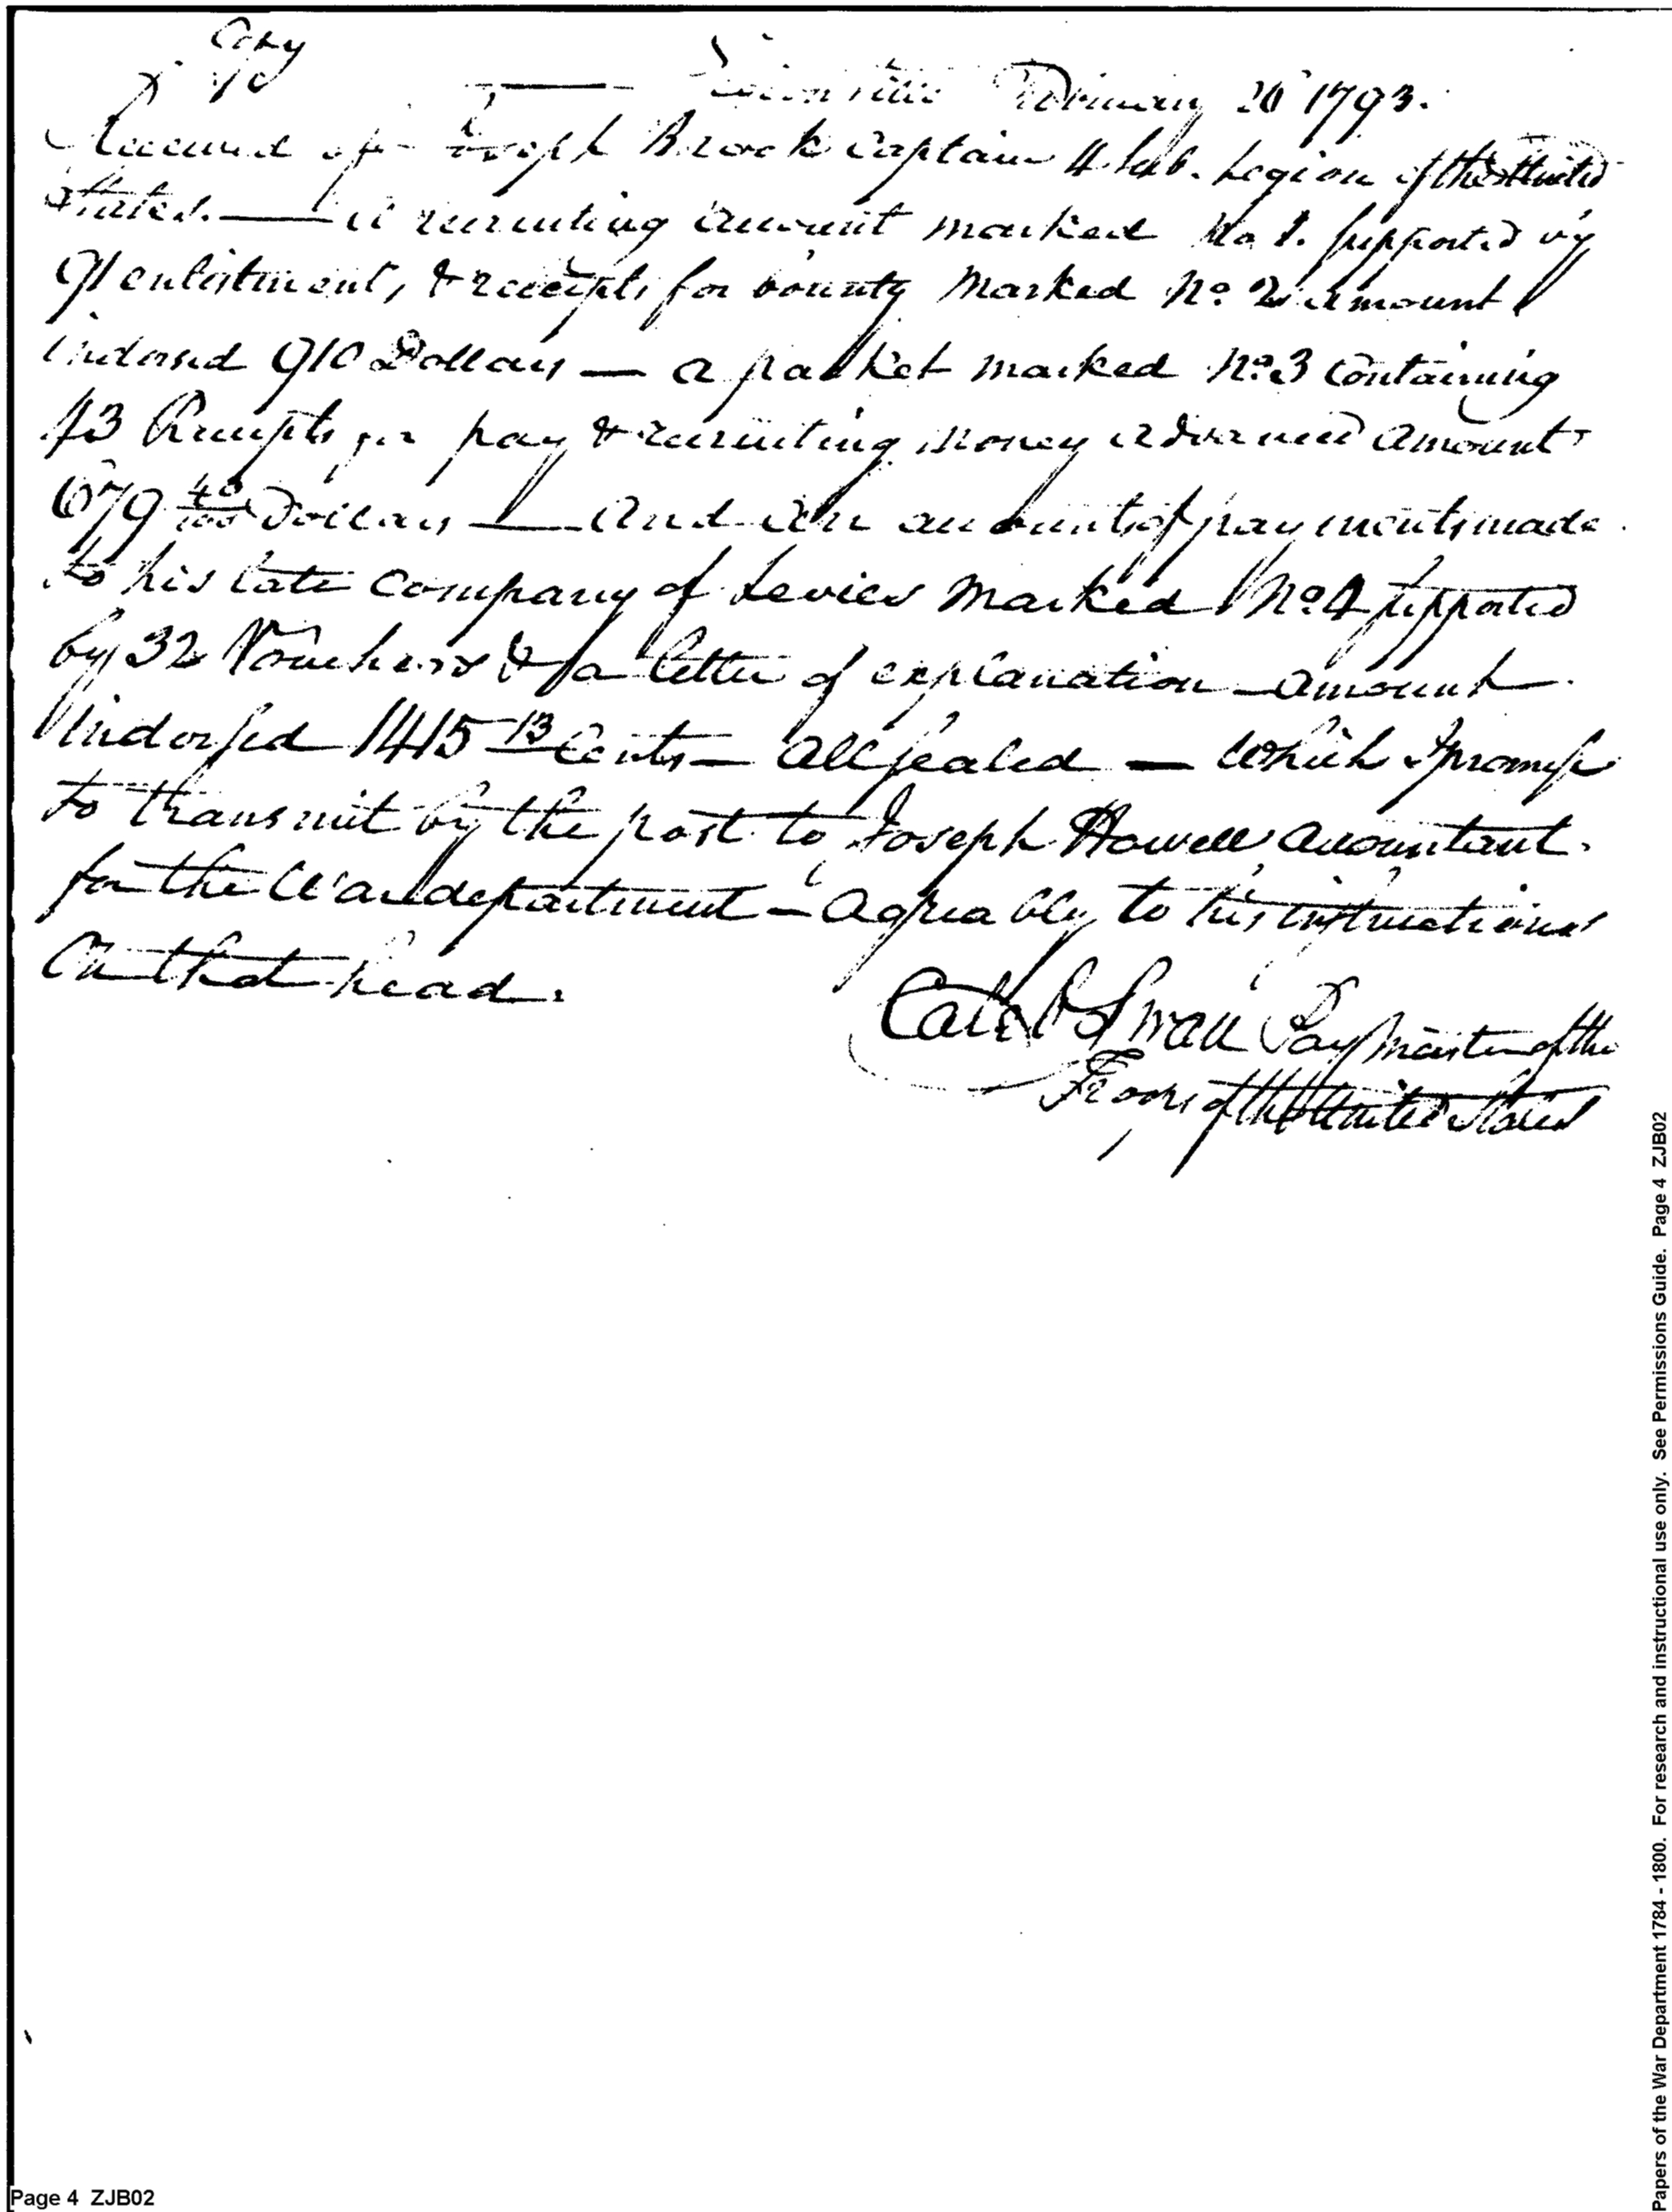 Copy
Legionville February 20 1793.
Received of Joseph Brock Captain 4 Sub. Legion of the United
States. — A recruiting account marked No 1. supported by
91 enlistments, & receipts for bounty marked No. 2 amount
indorsed 910 Dollars — a packet marked No. 3 Containing
43 Receipts for pay & recruiting money advanced amount
679 40/100 Dollars — And an account of payments made
to his late Company of Levies marked No 4 supported
by 32 Vouchers & a letter of explanation amount
indorsed 1415 13 Cents — all sealed — which I promise
to transmit by the post to Joseph Howell accountant
for the War department — agreably to his instructions
on that head.
Caleb Swan Pay Master of the
Troops of the United States
Page 4 ZJB02
Papers of the War Department 1784 - 1800. For research and instructional use only. See Permissions Guide. Page 4 ZJB02